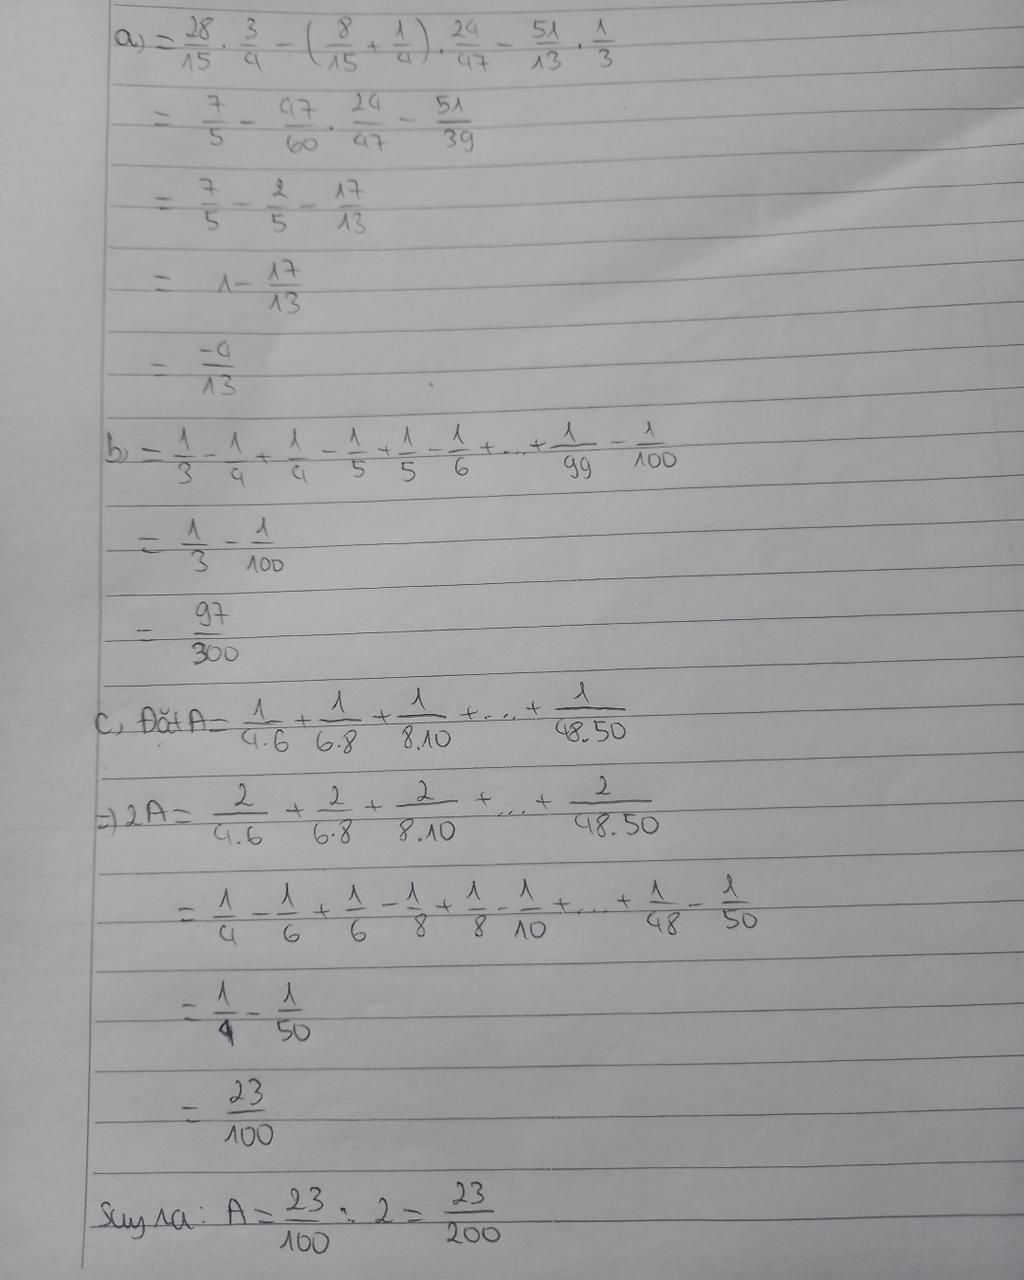 a) = 28/15 . 3/4 - (8/15 + 1/4) . 24/47 - 51/13 . 1/3
= 7/5 - 47/60 . 24/47 - 51/39
= 7/5 - 2/5 - 17/13
= 1 - 17/13
= -4/13
b) = 1/3 - 1/4 + 1/4 - 1/5 + 1/5 - 1/6 + ... + 1/99 - 1/100
= 1/3 - 1/100
= 97/300
c, Đặt A = 1/4.6 + 1/6.8 + 1/8.10 + ... + 1/48.50
=> 2A = 2/4.6 + 2/6.8 + 2/8.10 + ... + 2/48.50
= 1/4 - 1/6 + 1/6 - 1/8 + 1/8 - 1/10 + ... + 1/48 - 1/50
= 1/4 - 1/50
= 23/100
Suy ra: A = 23/100 : 2 = 23/200